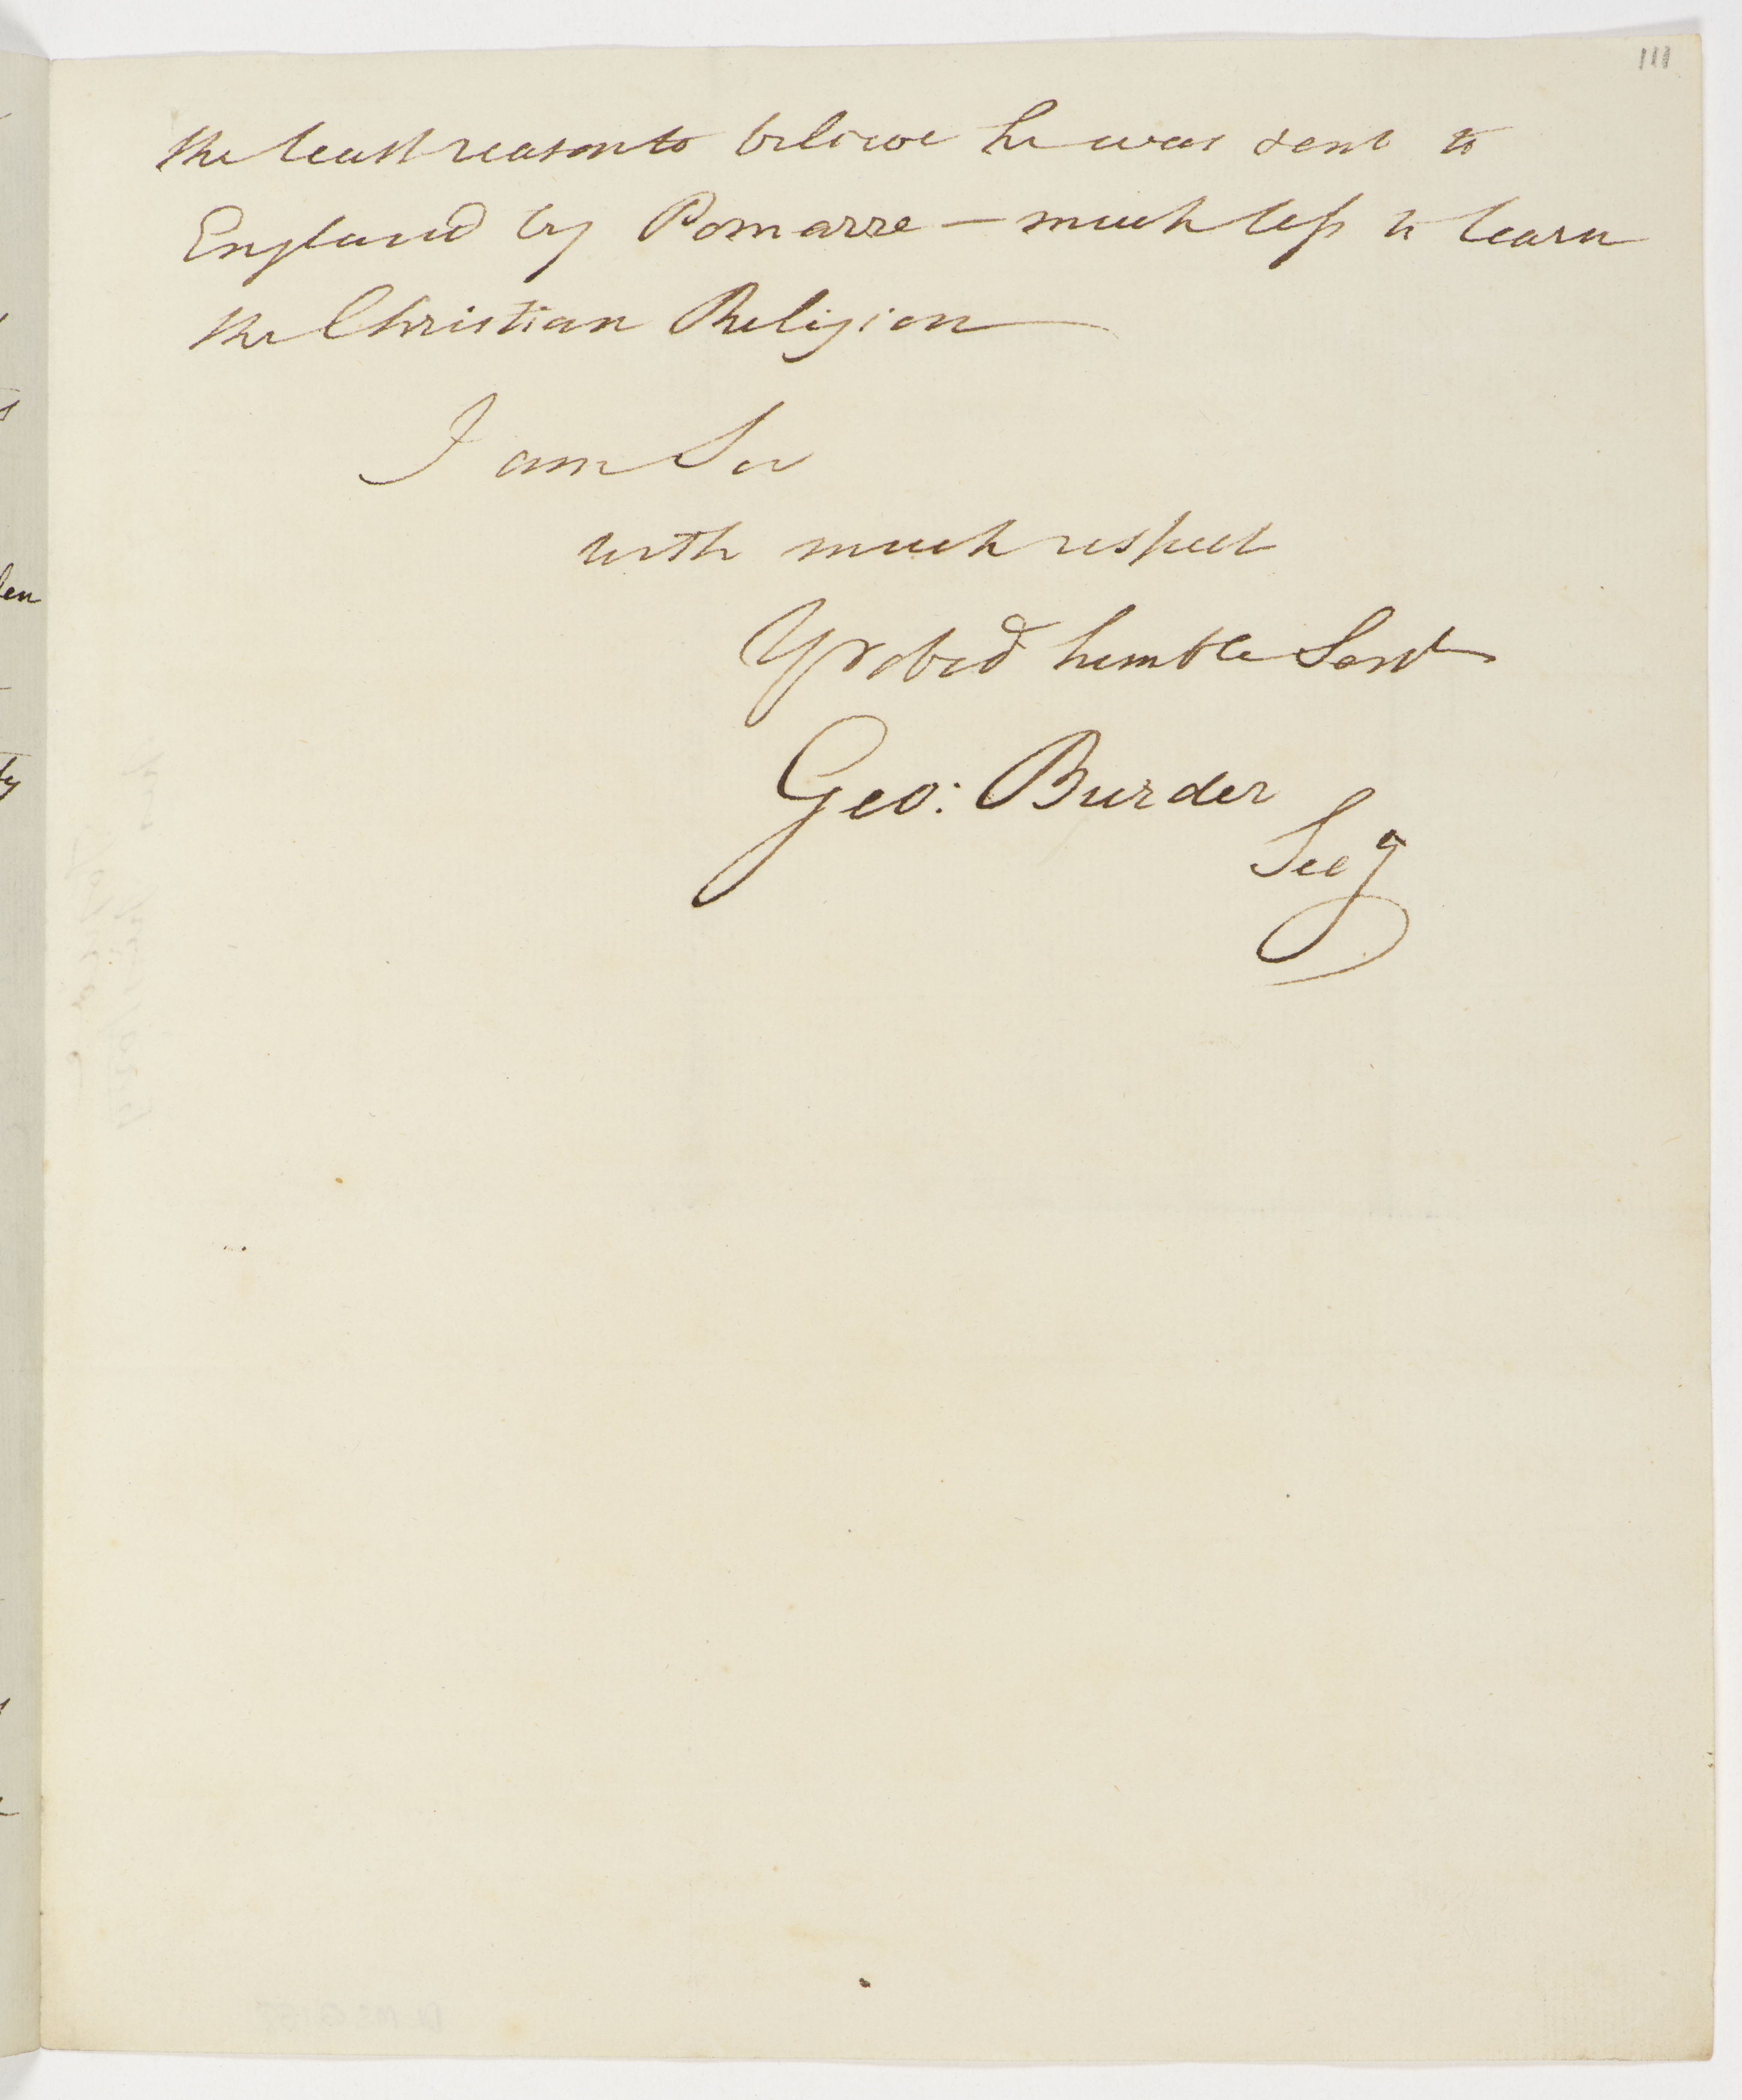 111
the least reason to believe he was sent to
England by Pomarre – much less to learn
the Christian Religion
I am Sir
with much respect
Yr obed humble Servt
Geo: Burder
Secy